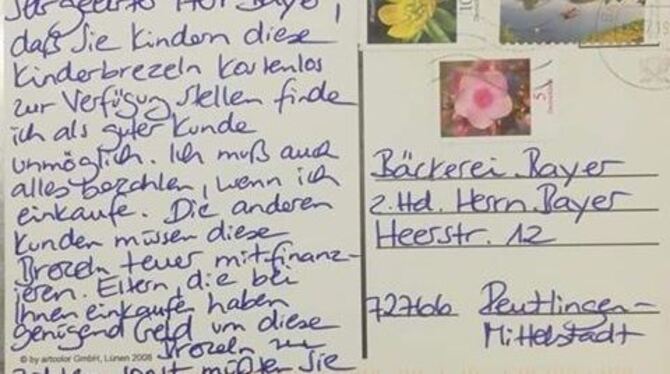 Sehr geehrter Herr Bayer,
daß Sie Kindern diese
Kinderbrezeln kostenlos
zur Verfügung stellen finde
ich als guter Kunde
unmöglich. Ich muß auch
alles bezahlen, wenn ich
einkaufe. Die anderen
Kunden müssen diese
Brezeln teuer mitfinanz-
ieren. Eltern, die bei
Ihnen einkaufe haben
genügend Geld um diese
Brezeln zu
müßten Sie
© by artcolor GmbH, Lünen 2008
Bäckerei Bayer
z.Hd. Herrn Bayer
Heerstr. 12
72766 Reutlingen-
Mittelstadt